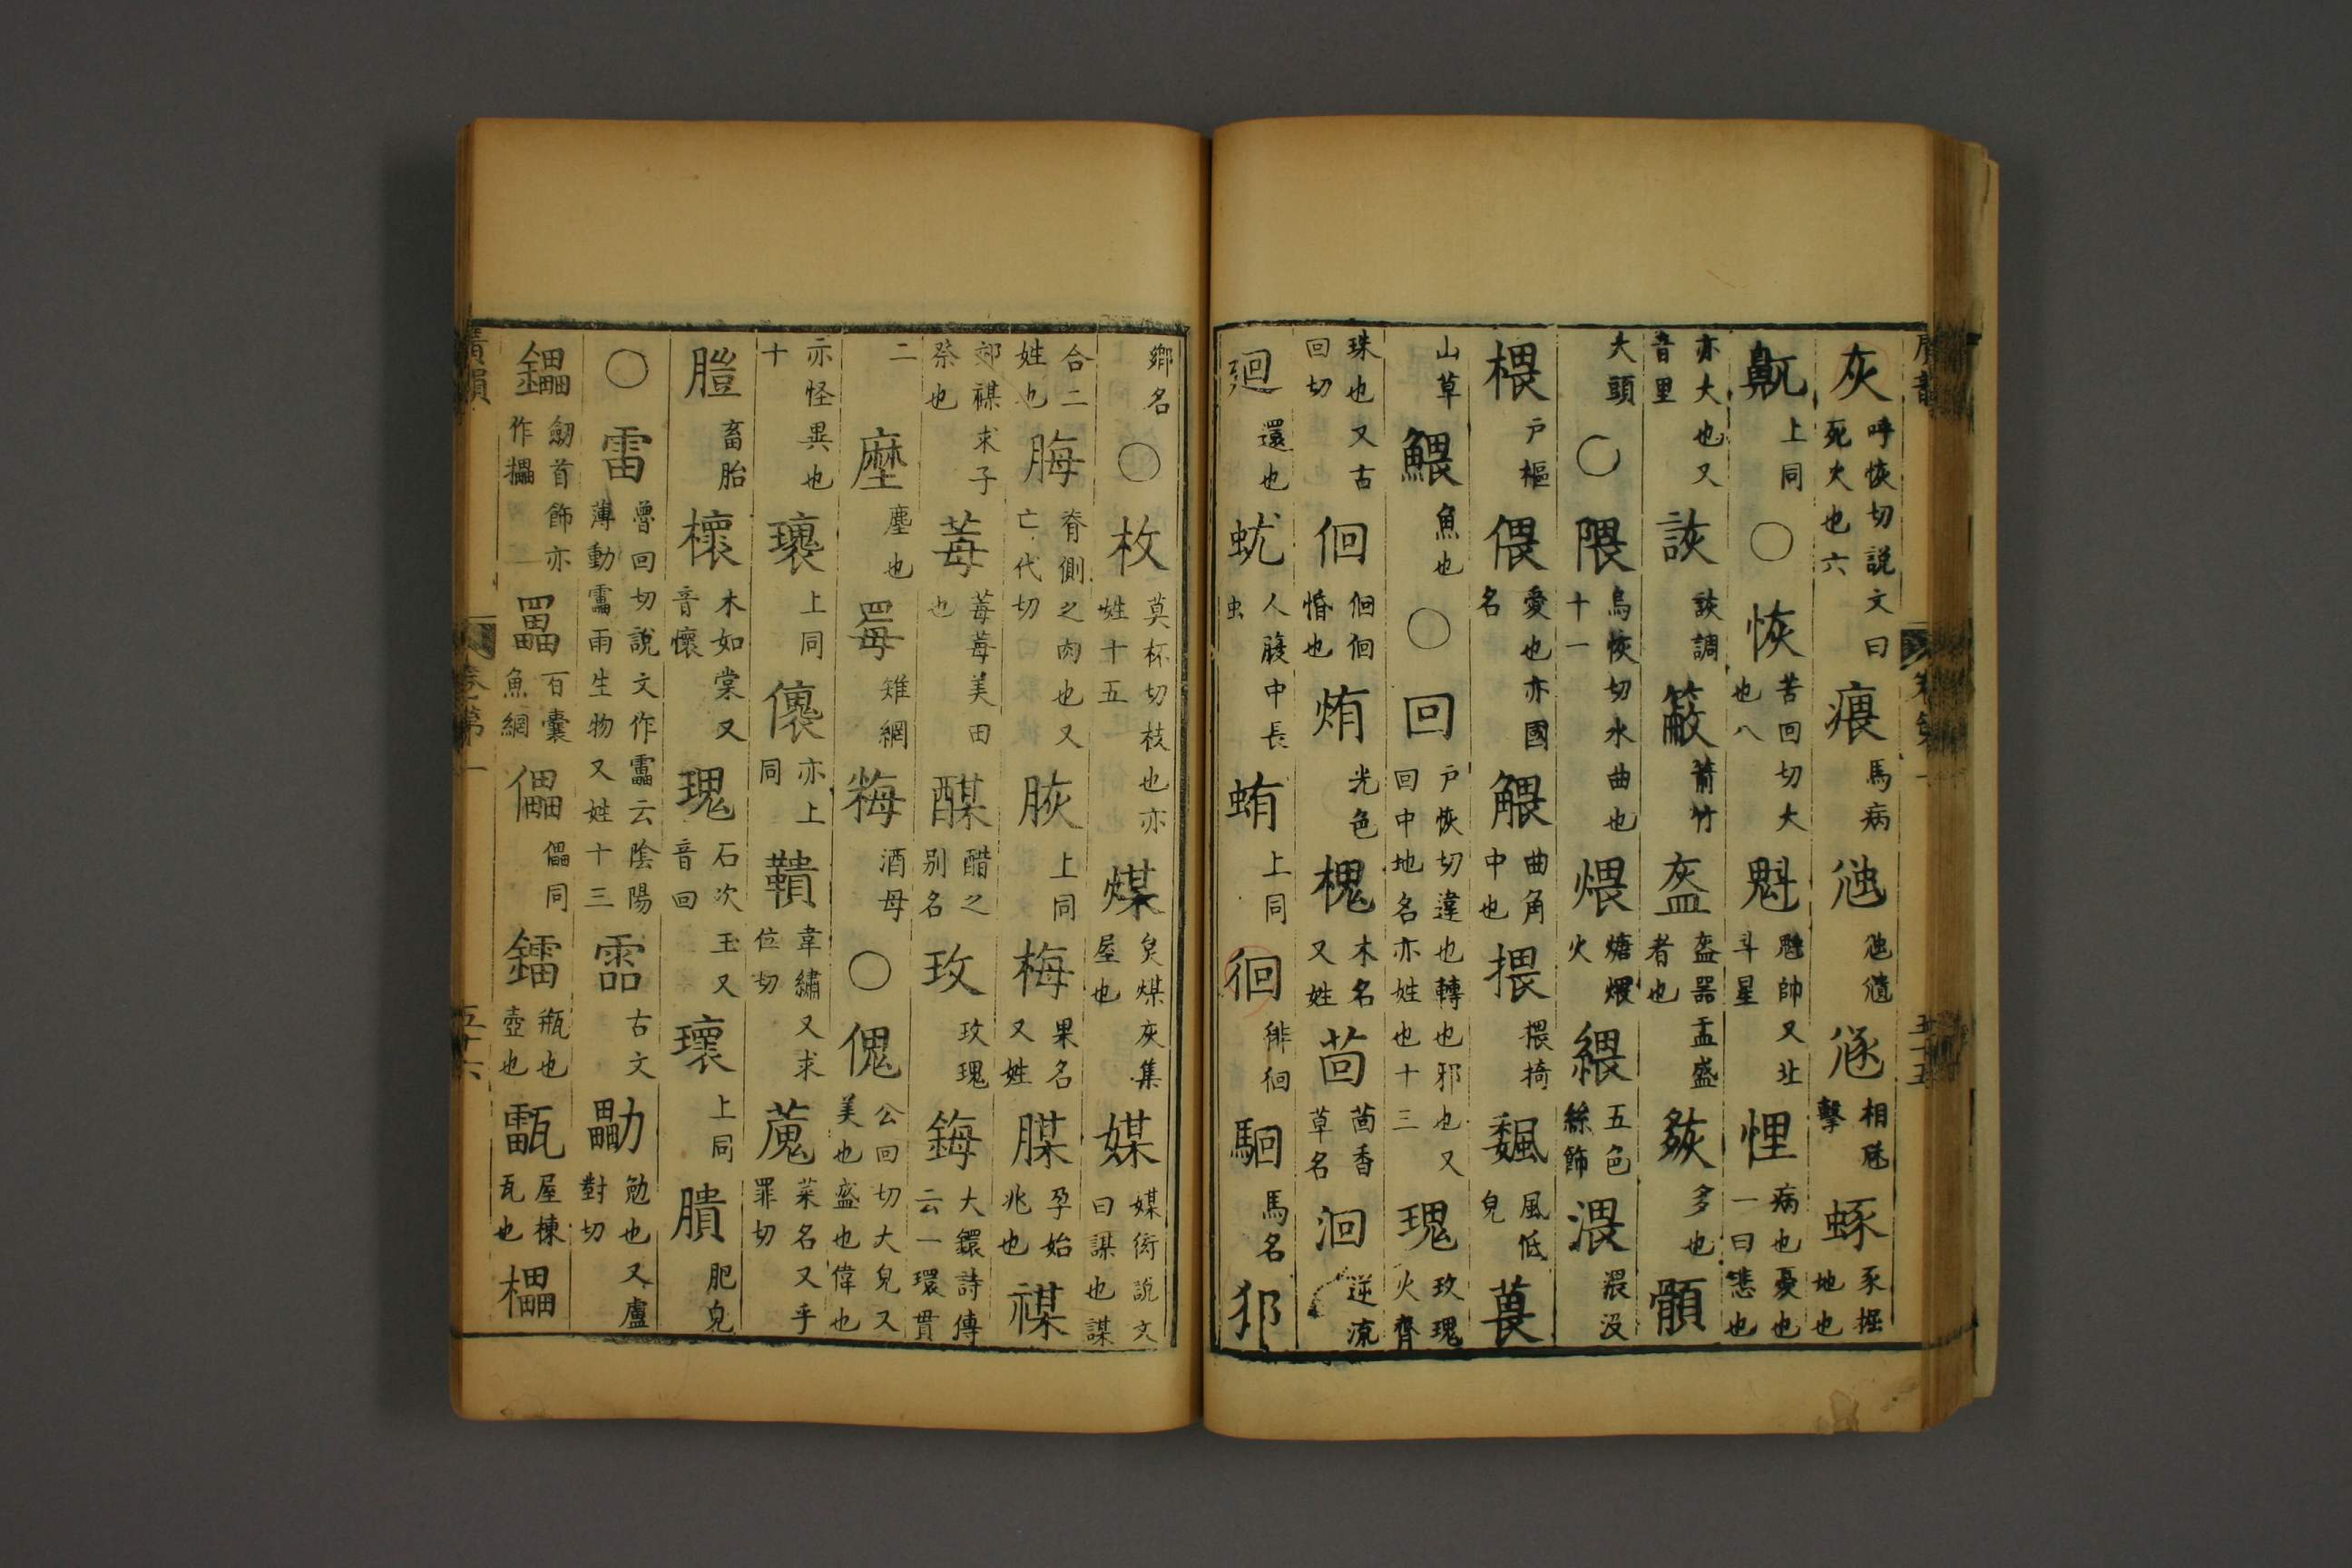 灰呼恢切說文曰死火也六㾯馬病㷇
相𢷎擊豗豕掘地也
上同○恢苦回切大也八魁魁帥又北斗星悝病也憂也一曰悲也
亦大也又音里詼詼調䈐箭竹盔盔器盂盛者也𡖯多也顝
大頭○隈烏恢切水曲也十一煨煻煨火緭五色絲飾渨渨沒
椳戶樞偎愛也亦國名䚈曲角中也揋揋掎䫥風低皃葨
山草鰃魚也○回戶恢切違也轉也邪也又回中地名亦姓也十三瑰玫瑰火齊
珠也又古回切佪佪佪惛也烠光色槐木名又姓茴茴香草名洄逆流
迴還也蚘人腹中長虫蛕上同徊徘徊駉馬名㹬
廣韻 卷第一 五十五
鄉名○枚莫杯切枝也亦姓十五煤炱煤灰集屋也媒媒衒說文曰謀也謀
合二姓也脢脊側之肉也又亡代切脄上同梅果名又姓腜孕始兆也禖
郊禖求子祭也莓莓莓美田也䤂醋之別名玫玫瑰鋂大鐶詩傳云一環貫
二塺塵也𦊁雉網䊈酒母○傀公回切大皃又美也盛也偉也
十亦怪異也瓌上同儴亦上同鞼韋繡又求位切蒐菜名又乎罪切
膯畜胎櫰木如棠又音懷瑰石次玉又音回瓌上同膭肥皃
○雷魯回切說文作靁云陰陽薄動靁雨生物又姓十三䨓古文勵勉也又盧對切
鑘劒首飾亦作㩳罍百囊魚網儡儡同鐳瓶也壺也甋屋棟瓦也櫑
廣韻 卷第一 五十六